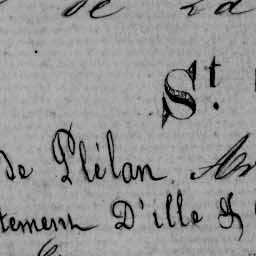 de la
St.
de Plélan. Ar
tement D'ille &